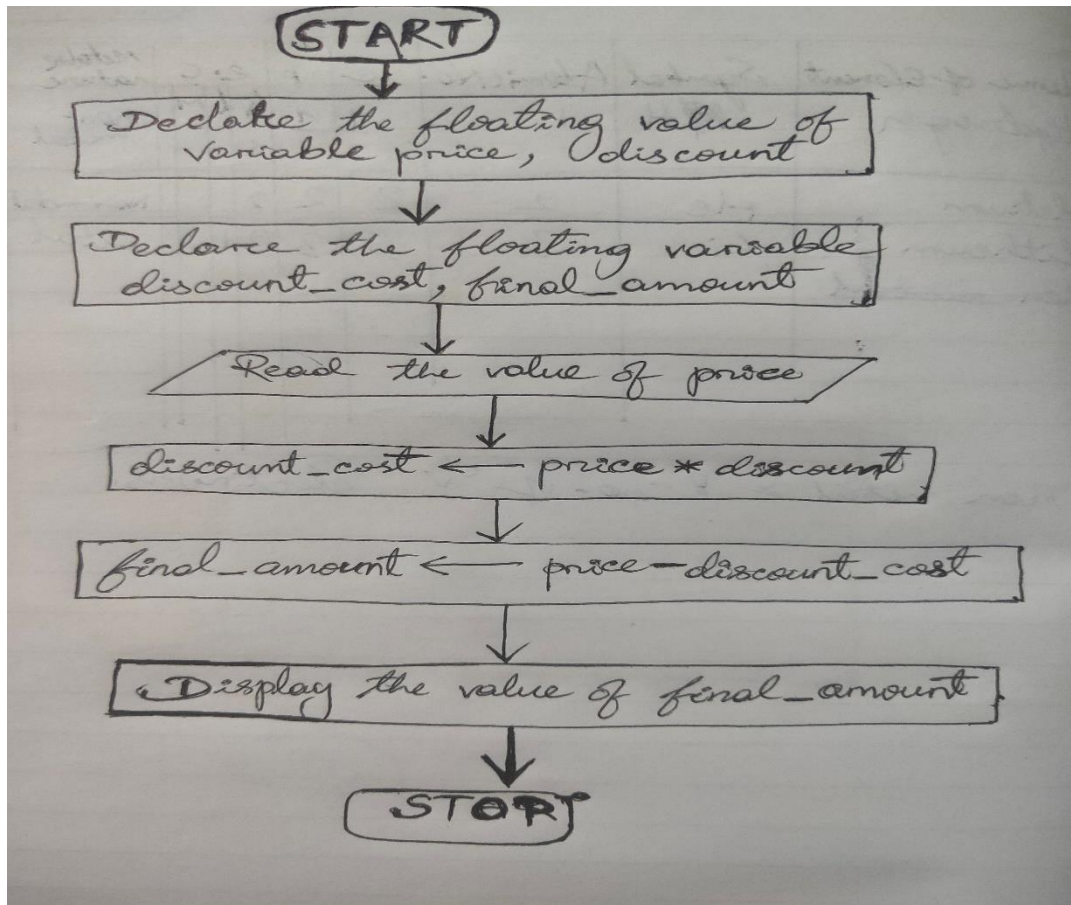 START
Declare the floating value of
variable price, discount
Declare the floating variable
discount_cost, final_amount
Read the value of price
discount_cost ← price * discount
final_amount ← price - discount_cost
Display the value of final_amount